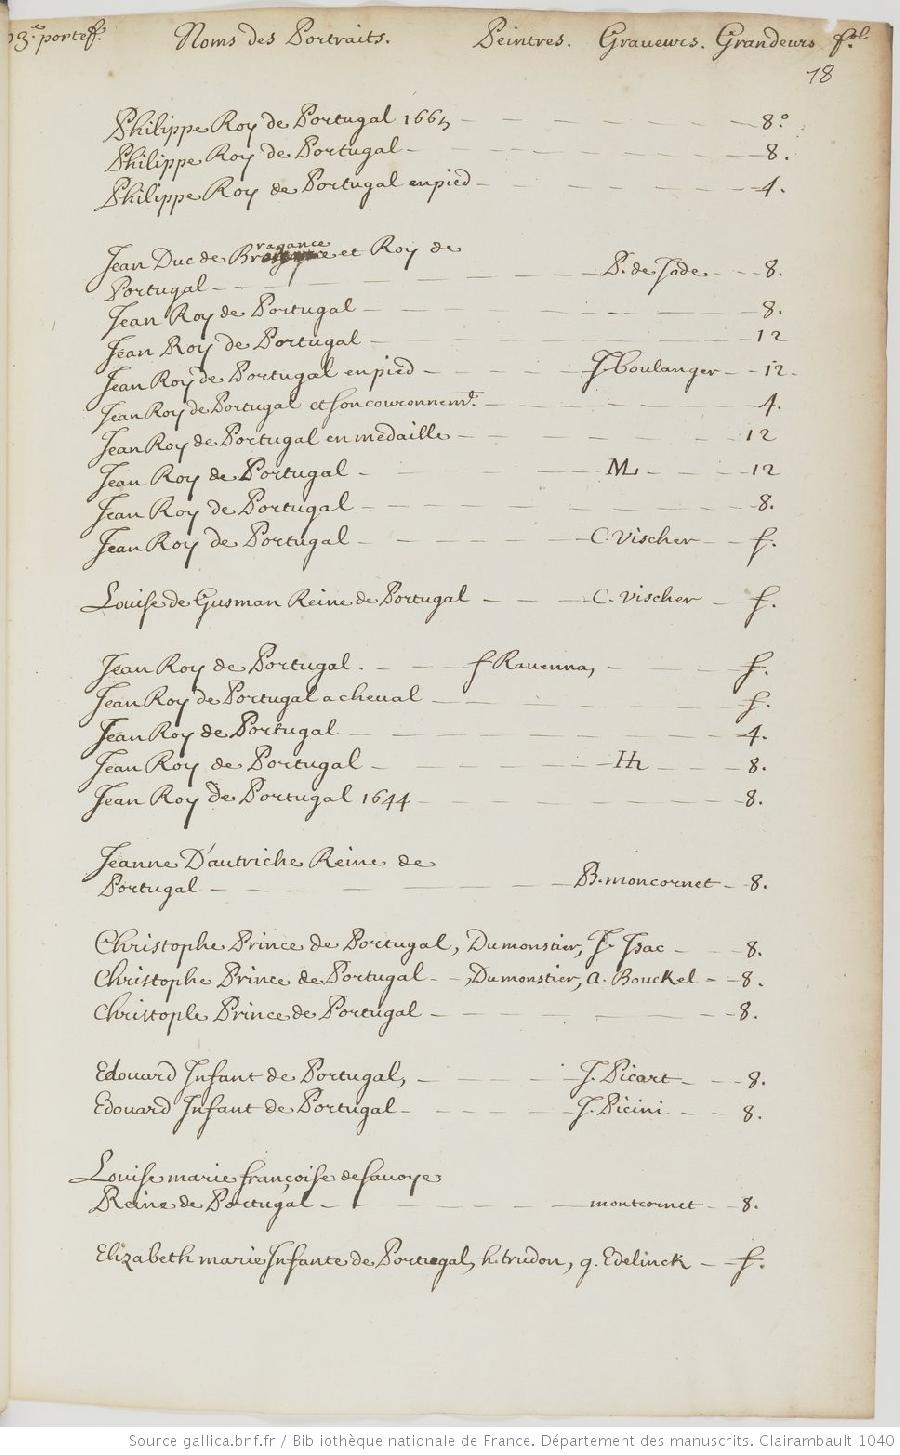 3.e portef. Noms des Portraits. Peintres. Graveurs. Grandeurs f.l
18
Philippe Roy de Portugal 1665 8.o
Philippe Roy de Portugal 8.
Philippe Roy de Portugal en pied 4.
Jean Duc de Bragance et Roy de
Portugal P. de Jode 8.
Jean Roy de Portugal 8.
Jean Roy de Portugal 12
Jean Roy de Portugal en pied J. Boulanger 12.
Jean Roy de Portugal et son couronnemt. 4.
Jean Roy de Portugal en medaille 12
Jean Roy de Portugal ML 12
Jean Roy de Portugal 8.
Jean Roy de Portugal C. Vischer f.
Louise de Gusman Reine de Portugal C. Vischer f.
Jean Roy de Portugal. f Ravenna, f.
Jean Roy de Portugal a cheval f.
Jean Roy de Portugal 4.
Jean Roy de Portugal 8.
Jean Roy de Portugal 1644 8.
Jeanne D'autriche Reine de
Portugal B. moncornet 8.
Christophe Prince de Portugal, Dumonstier, J. Isac 8.
Christophe Prince de Portugal, Dumonstier, a. Bouckel 8.
Christople Prince de Portugal 8.
Edouard Infant de Portugal, J. Picart 8.
Edouard Infant de Portugal J. Picini 8.
Louise marie françoise de savoye
Reine de Portugal montcornet 8.
Elizabeth marie Infante de Portugal, h. trudon, g. Edelinck f.
Source gallica.bnf.fr / Bibliothèque nationale de France. Département des manuscrits. Clairambault 1040